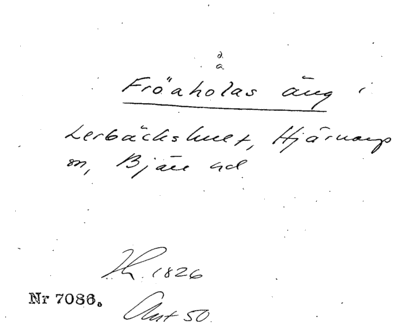 å
Fröaholas äng i
Lerbäckshult, Hjärnarp
sn, Bjäre hd
1826
Nr 7086.
Avst 50